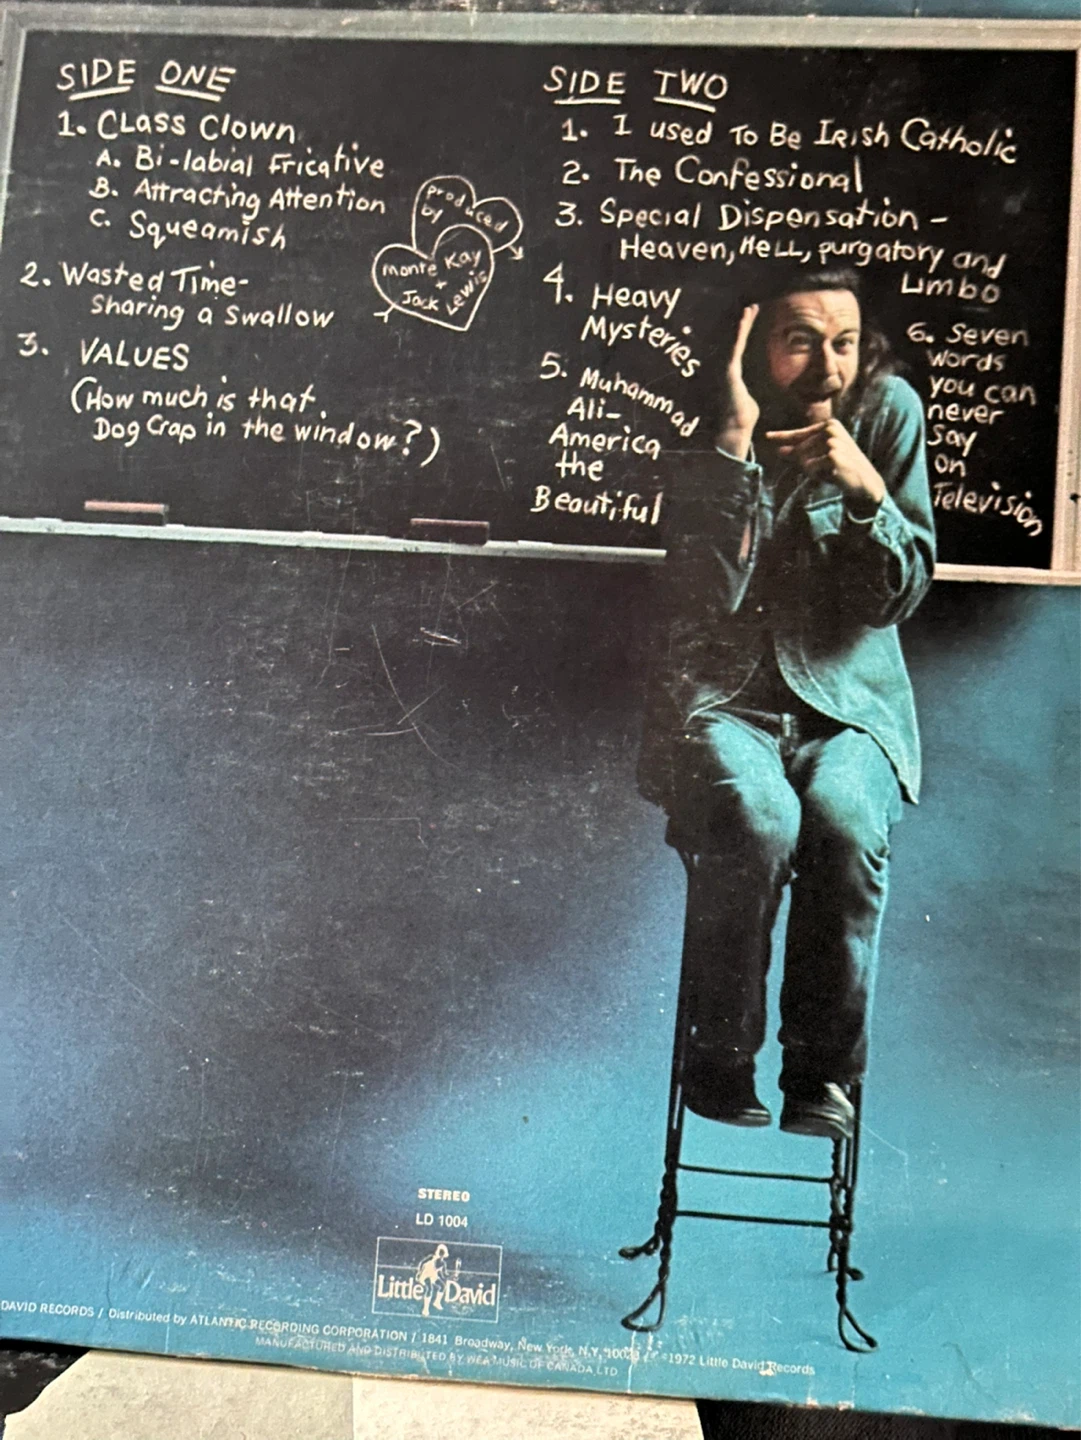 SIDE ONE
1. CLass Clown
A. Bi-labial Fricative
B. Attracting Attention
C. Squeamish
2. Wasted Time-
Sharing a Swallow
3. VALUES
(How much is that
Dog Crap in the window?)
produced
by
Monte Kay
+
Jack Lewis
SIDE TWO
1. I used To Be IRish Catholic
2. The Confessional
3. Special Dispensation -
Heaven, HeLL, purgatory and
Limbo
4. Heavy
Mysteries
5. Muhammad
Ali-
America
the
Beautiful
6. Seven
Words
you can
never
Say
on
Television
STEREO
LD 1004
Little David
DAVID RECORDS / Distributed by ATLANTIC RECORDING CORPORATION / 1841 Broadway, New York, N.Y. 10023 / ©1972 Little David Records
MANUFACTURED AND DISTRIBUTED BY WEA MUSIC OF CANADA, LTD